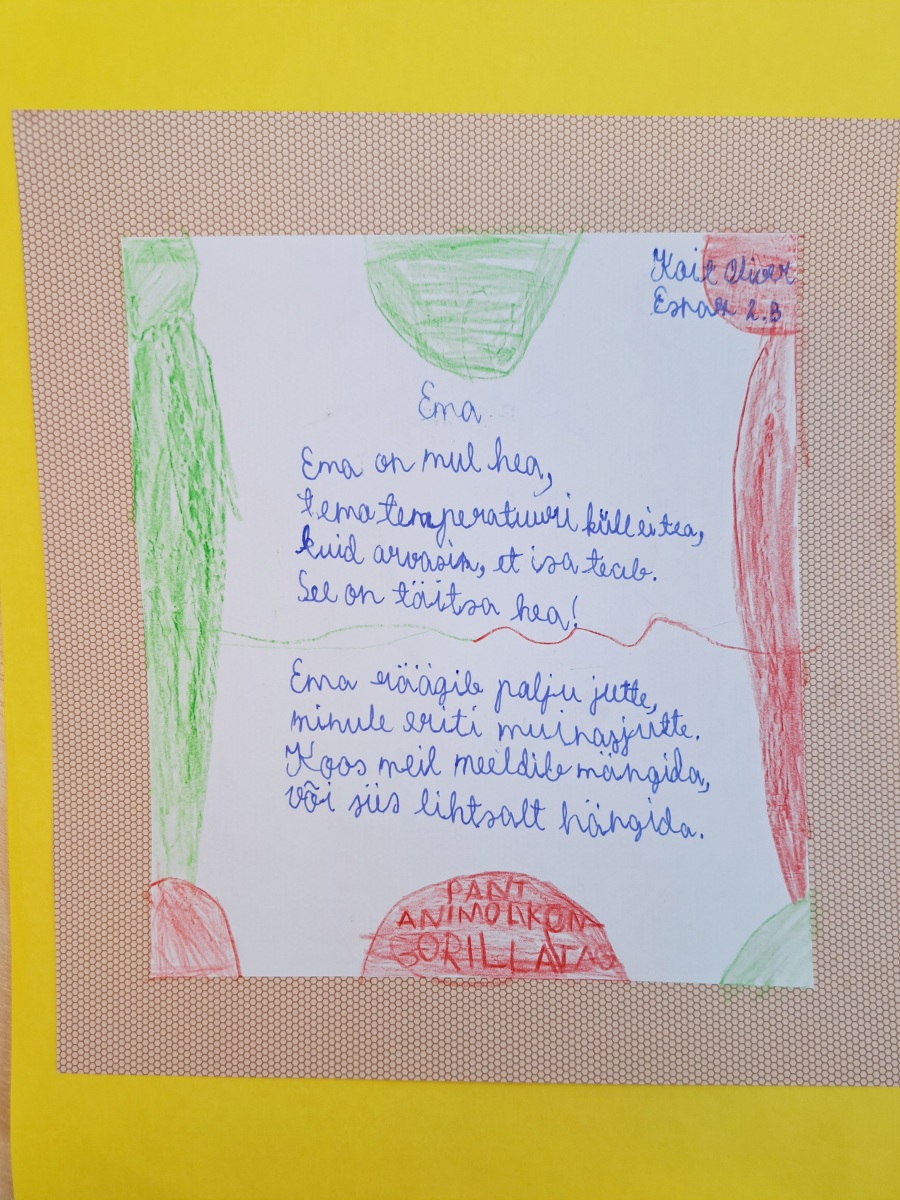 Kait Oliver
2.B
Ema
Ema on mul hea,
tema temperatuuri küll ei tea,
kuid arvasin, et isa teab.
See on täitsa hea!
Ema räägib palju jutte,
minule eriti muinasjutte.
Koos meil meeldib mängida,
või siis lihtsalt hängida.
PANT
GORILLATAG